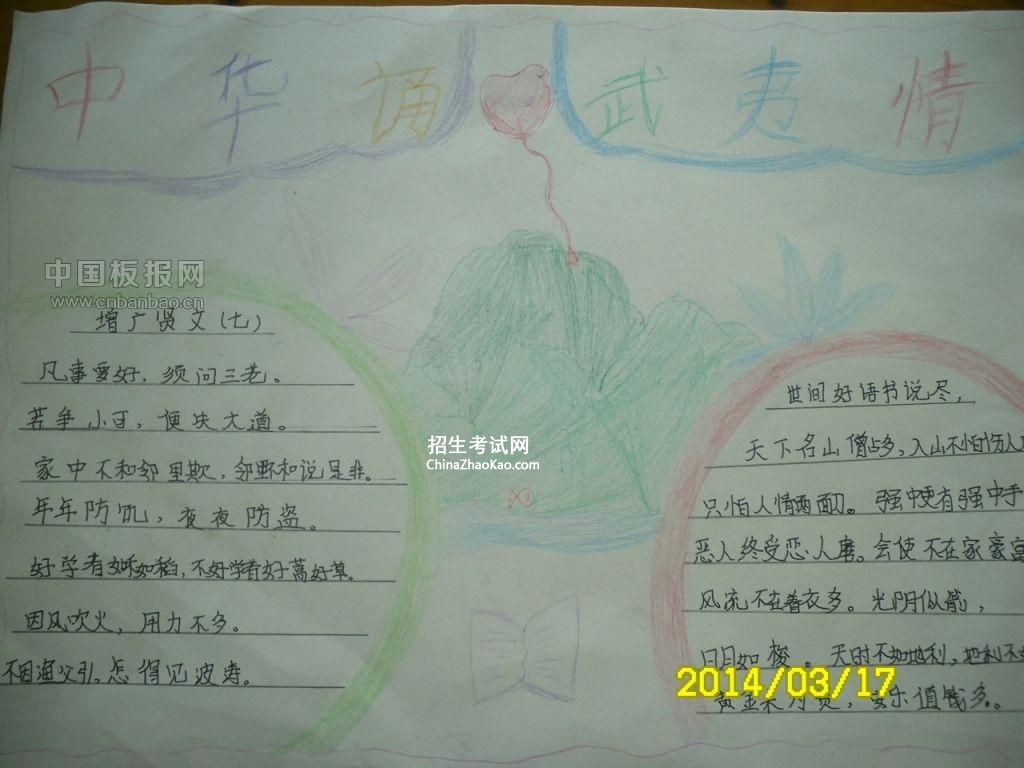 中华诵
武夷情
中国板报网
www.cnbanbao.cn
增广贤文(七)
凡事要好，须问三老。
若争小可，便失大道。
家中不和邻里欺，邻里不和说是非。
年年防饥，夜夜防盗。
好学者如禾如稻，不好学者如蒿如草。
因风吹火，用力不多。
不因渔父引，怎得见波涛。
招生考试网
ChinaZhaoKao.com
世间好语书说尽，
天下名山僧占多，入山不怕伤人
只怕人情两面刀。强中更有强中手
恶人终受恶人磨。会使不在家豪富
风流不在着衣多。光阴似箭，
日月如梭。天时不如地利，地利不
黄金未为贵，安乐值钱多。
2014/03/17